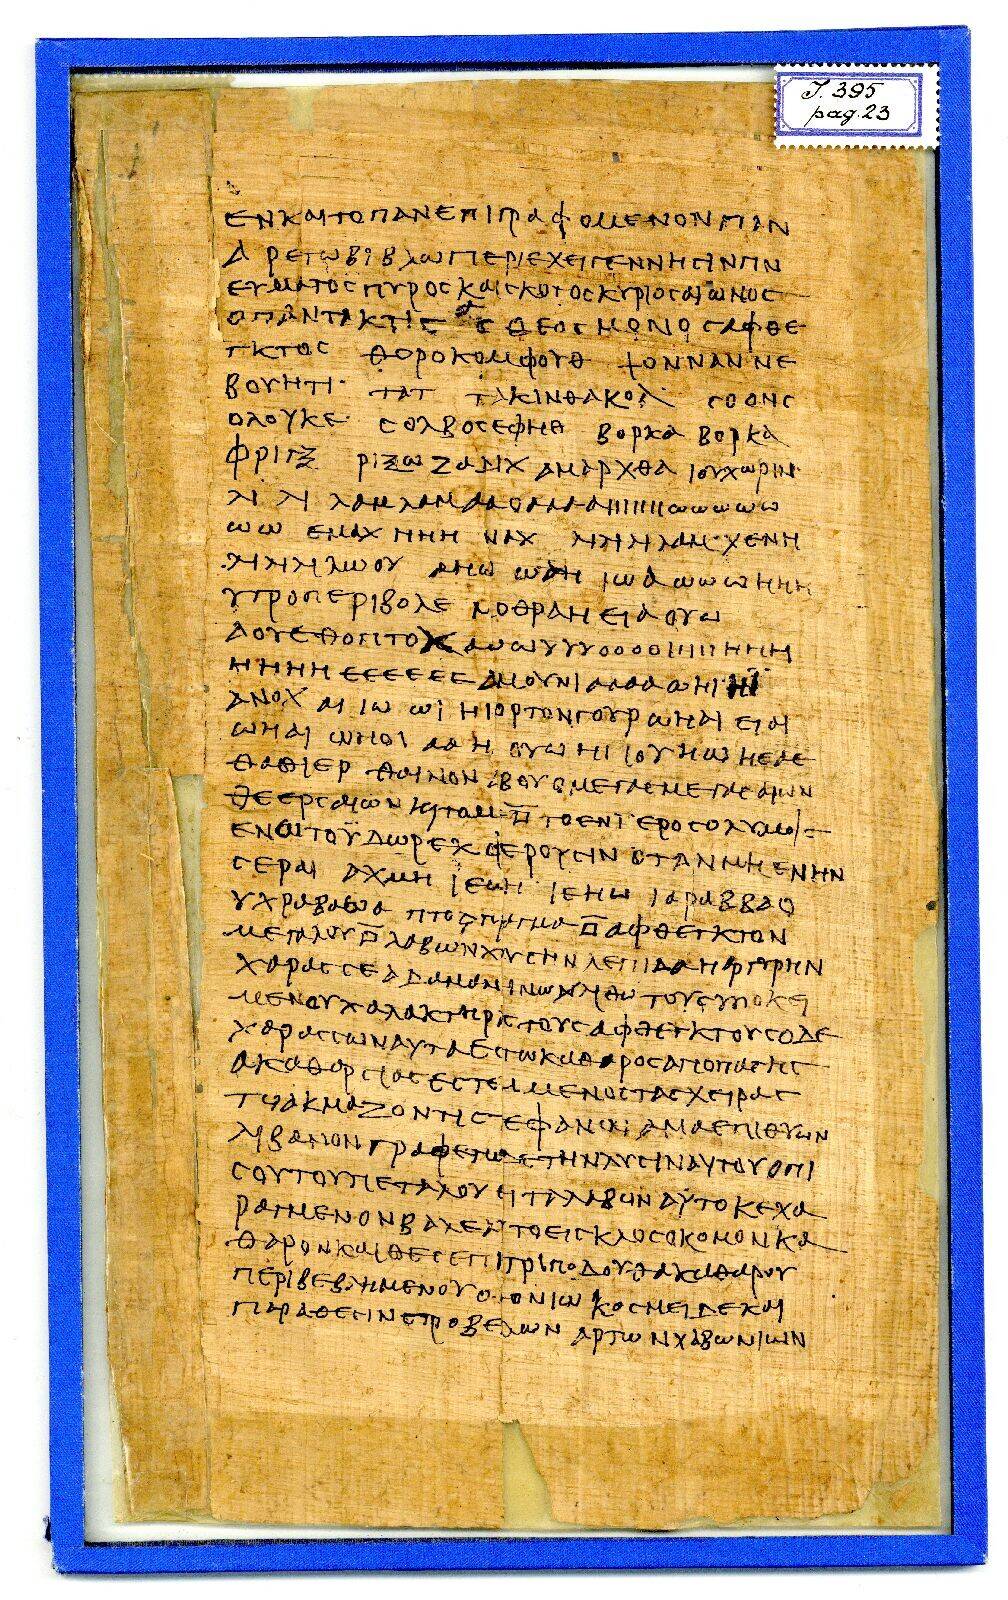 J. 395
pag. 23
ΕΝΚΑΙΤΟΠΑΝΕΠΙΓΡΑΦΟΜΕΝΟΝΠΑΝ
ΑΡΕΤΩΒΙΒΛΩΠΕΡΙΕΧΕΙΓΕΝΝΗΣΙΝΠΝ
ΕΥΜΑΤΟΣΠΥΡΟΣΚΑΙΣΚΟΤΟΣΚΥΡΙΟΣΑΙΩΝΟΣ
ΟΠΑΝΤΑΚΤΙΣΑΣΘΕΟΣΜΟΝΟΣΑΦΘΕ
ΓΚΤΟΣ ΘΟΡΟΚΟΜΦΟΥΘ ΨΟΝΝΑΝΝΕ
ΒΟΥΗΤΙ ΤΑΤ ΤΑΚΙΝΘΑΚΟΛ ΣΟΟΝΣ
ΟΛΟΥΚΕ ΣΟΛΒΟΣΕΦΗΘ ΒΟΡΚΑ ΒΟΡΚΑ
ΦΡΙΓΞ ΡΙΞΩ ΖΑΔΙΧ ΑΜΑΡΧΘΑ ΙΟΥΧΩΡΙΝ
ΛΙ ΛΙ ΛΑΜ ΛΑΜ ΑΑΑΑΑΑΑΙΙΙΙΙΙΙΩΩΩΩΩ
ΩΩ ΕΜΑΧ ΗΗΗ ΝΑΧ ΛΙΛΙΛΑΜ ΧΕΝΗ
ΛΙΛΙΛΩΟΥ ΑΗΩ ΩΑΗ ΙΩΑ ΩΩΩ ΗΗΗ
ΥΓΡΟΠΕΡΙΒΟΛΕ ΝΟΘΡΑΗ ΕΙΑ ΟΥΩ
ΔΟΥΕΘΟΠΤΟΧ ΑΩΩΥΥΥΟΟΟΟΙΙΙΙΙΗΗΗ
ΗΗΗΗ ΕΕΕΕΕΕΕ ΑΜΟΥΝΙ ΑΑΑΑ ΩΗΙ ΗΙ
ΑΝΟΧ ΑΙ ΙΩ ΩΙ ΗΙΟΡΤΟΝΓΟΥΡΩΗΑΙ ΕΙΑΙ
ΩΗΑΙ ΩΗΟΙ ΑΑΗ ΟΥΩ ΗΙ ΙΟΥ ΗΩ ΗΕΑΕ
ΘΑΘΙΕΡ ΘΑΙΝΟΝ ΑΒΟΥ ΟΜΕΓΑΣΜΕΓΑΣΑΙΩΝ
ΘΕΕΡΓΑΙΩΝ ΚΤΟΜ Π ΤΟ ΕΝ ΙΕΡΟΣΟΛΥΜΟΙΣ
ΕΝΩΙΤΟΥΔΩΡΕΚΦΕΡΟΥΣΙΝ ΟΤΑΝ ΜΗ ΕΝΗΝ
ΣΕΡΑΙ ΑΧΜΗ ΙΕΩΗ ΙΕΗΩ ΙΑΡΑΒΒΑΟ
ΥΧΡΑΒΑΩΑ ΠΤΟΣΠΡΑΓΜΑ Π ΑΦΘΕΓΚΤΟΝ
ΜΕΓΑΛΟΥ Π ΛΑΒΩΝΧΥΣΗΝΛΕΠΙΔΑΗΑΡΓΥΡΗΝ
ΧΑΡΑΣΣΕΑΔΑΜΑΝΤΙΝΩΛΙΘΩ ΤΟΥΣΥΠΟΚΕΙ
ΜΕΝΟΥΧΑΛΑΚΤΗΡΑΣΤΟΥΣΑΦΘΕΓΚΤΟΥΣΟΔΕ
ΧΑΡΑΣΣΩΝΑΥΤΑΕΣΤΩΚΑΘΑΡΟΣΑΠΟΠΑΣΗΣ
ΑΚΑΘΑΡΣΙΑΣΕΣΤΕΜΜΕΝΟΣΤΑΣΧΕΙΡΑΣ
ΤΩΑΚΜΑΖΟΝΤΙΣΤΕΦΑΝΩΙ ΑΜΑΕΠΙΘΥΩΝ
ΛΙΒΑΝΟΝ ΓΡΑΦΕΤΩΣΤΗΝΛΥΣΙΝΑΥΤΟΥΟΠΙ
ΣΟΥΤΟΥΠΕΤΑΛΟΥ ΕΙΤΑΛΑΒΩΝ ΑΥΤΟΚΕΧΑ
ΡΑΓΜΕΝΟΝΒΑΛΕΑΥΤΟΕΙΣΚΛΟΣΟΚΟΜΟΝΚΑ
ΘΑΡΟΝΚΑΙΘΕΣΕΠΙΤΡΙΠΟΔΟΥΛΑΚΑΘΑΡΟΥ
ΠΕΡΙΒΕΒΛΗΜΕΝΟΥΟΘΟΝΙΩ ΚΟΣΜΕΙΔΕΚΑΙ
ΠΑΡΑΘΕΣΙΝΣΤΡΟΒΕΙΛΩΝ ΑΡΤΩΝΧΑΒΩΝΙΩΝ